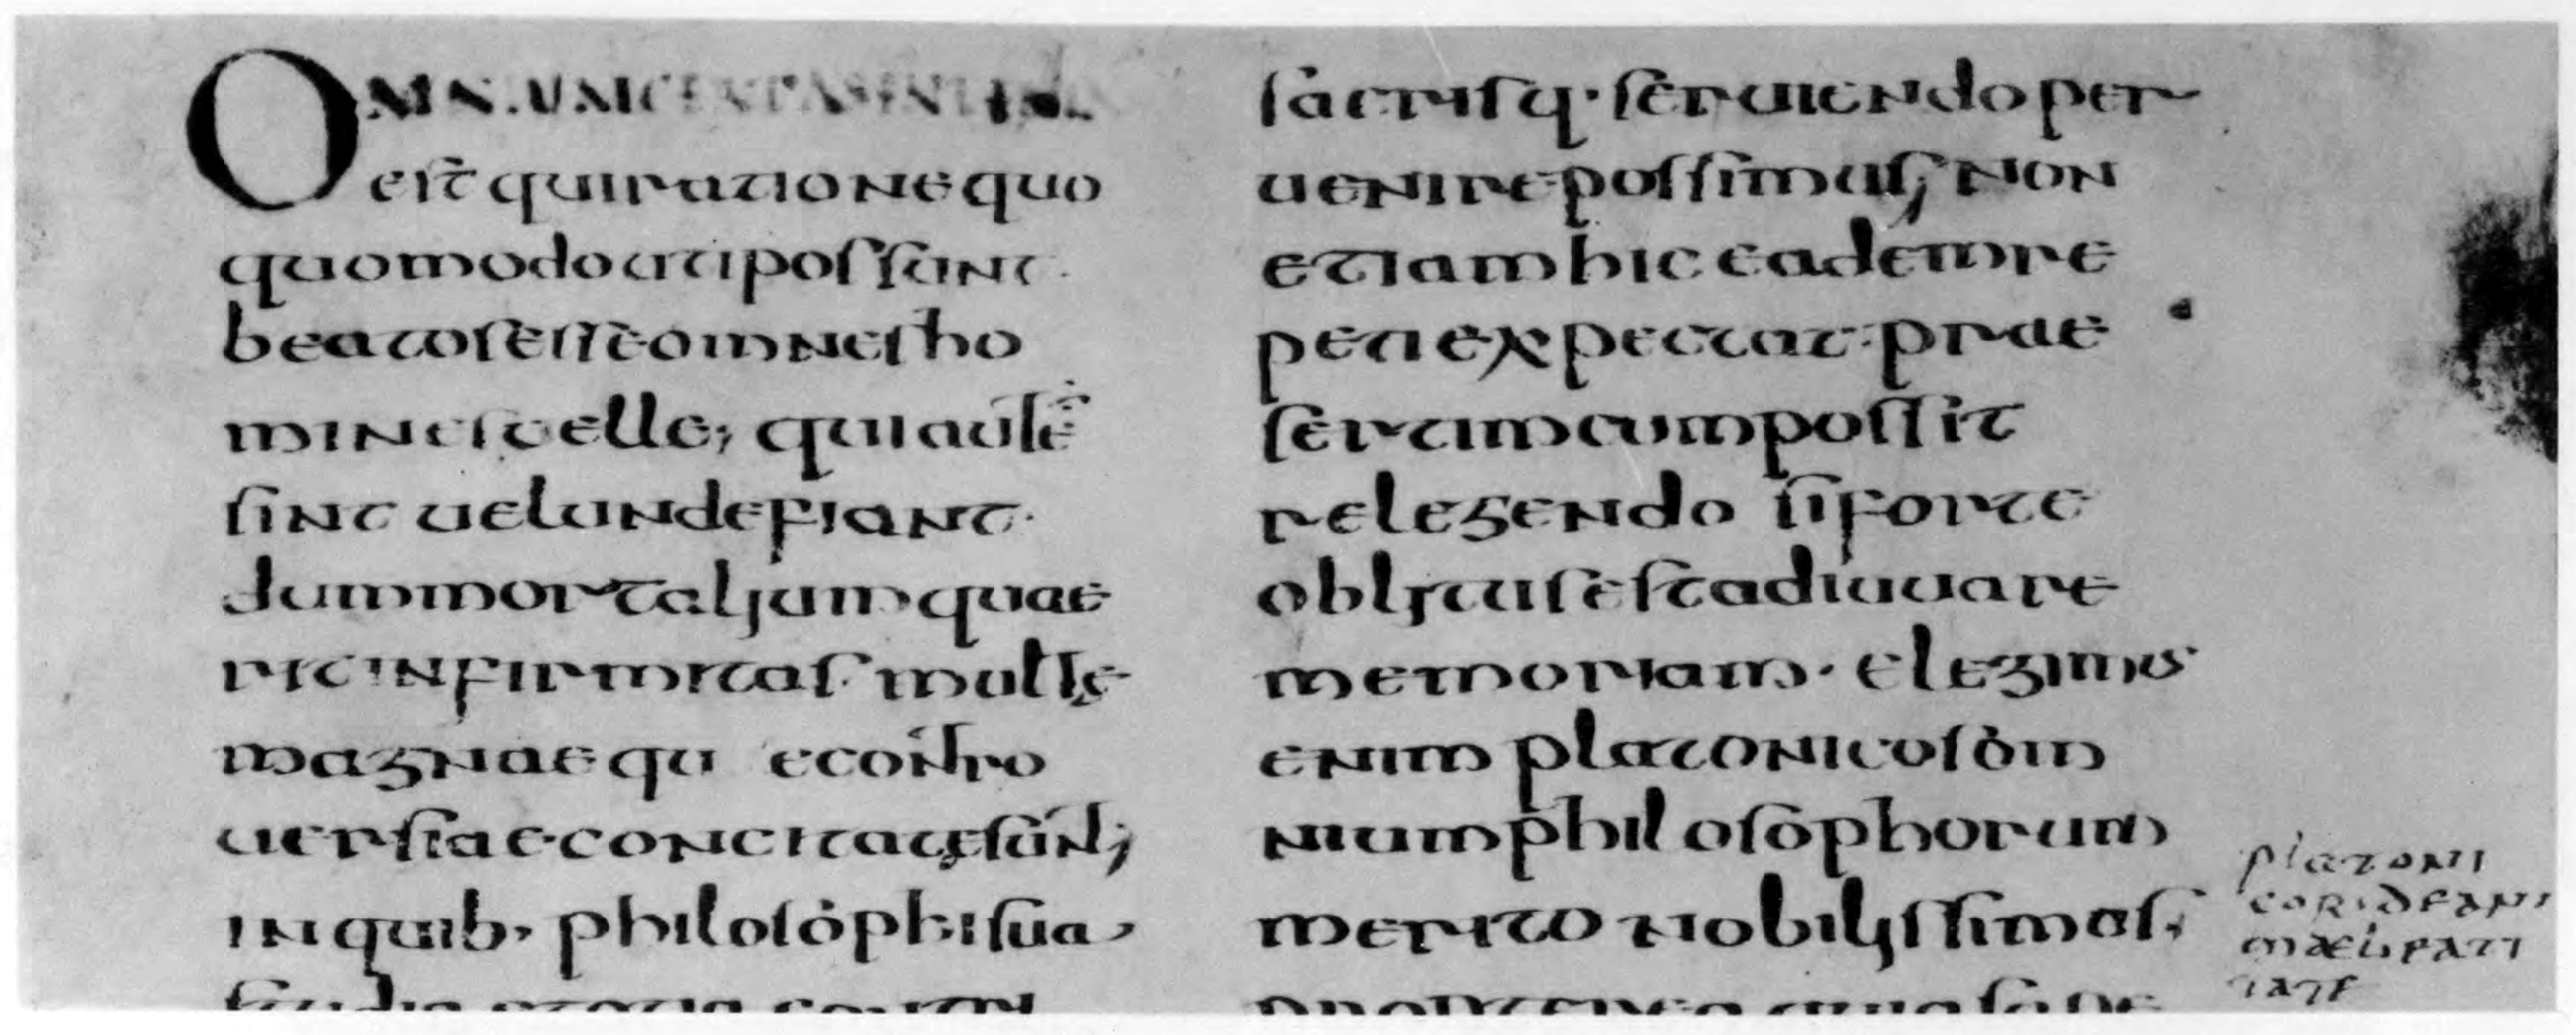 OMNIUM CERTA SENTENTIA
est qui ratione quo
quomodo uti possunt.
beatos esse omnes ho
mines velle; qui autē
sint uel unde fiant.
dum mortalium quae
rit infirmitas. multę
magnaequ e contro
uersiae concitatę sunt;
in quib, philosophi sua
studia et otia contri
sacrisq· seruiendo per
uenire possimus; non
etiam hic eadem re
peti expectat· prae
sertim cum possit
relegendo si forte
oblitus est adiuuare
memoriam· elegimus
enim platonicos om
nium philosophorum
merito nobilissimos;
propterea quia sape
platoni
cor · de ani
mae libera
tate